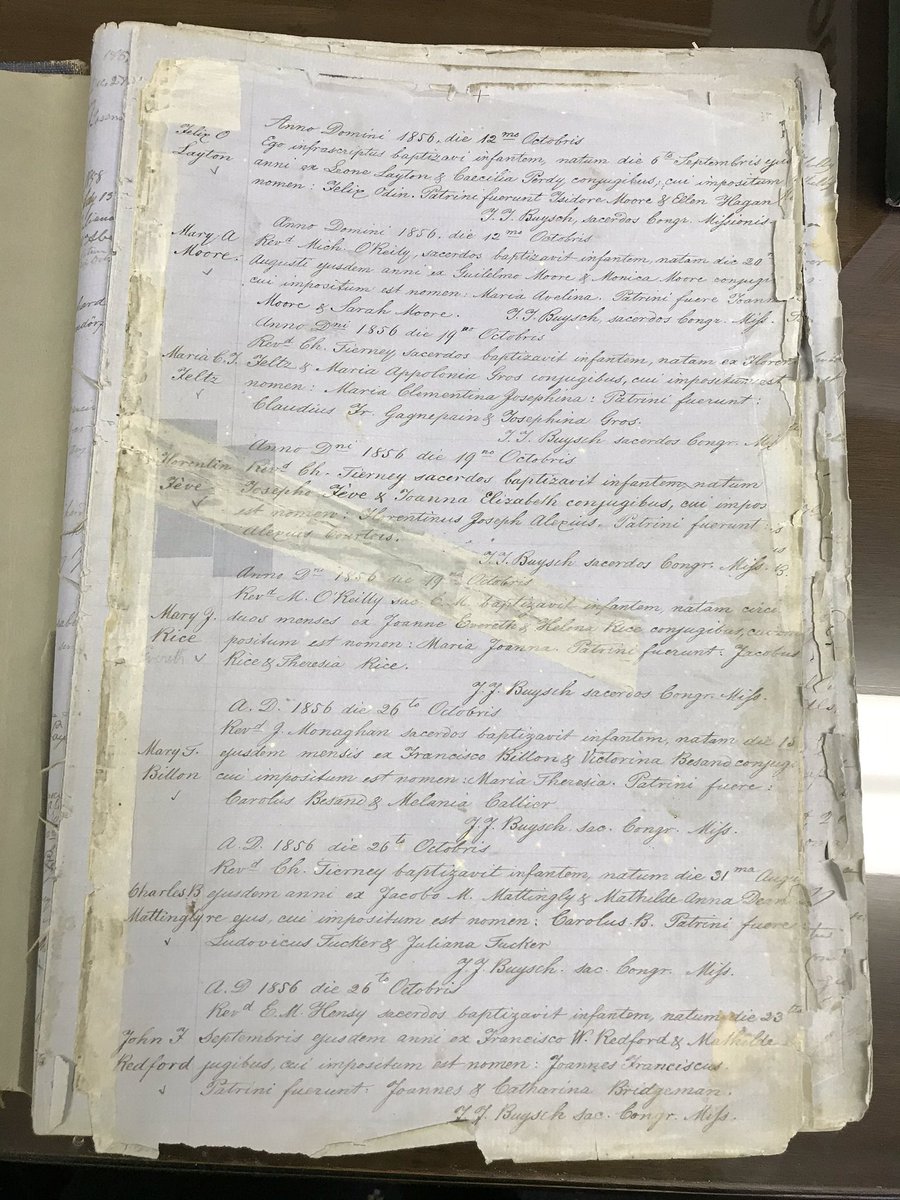 Felix O
Layton
Anno Domini 1856, die 12mo Octobris
Ego infrascriptus baptizavi infantem, natum die 6ta Septembris ejus
anni ex Leone Layton & Caecilia Perdy, conjugibus, cui impositum
nomen: Felix Odin. Patrini fuerunt Isidore Moore & Ellen Hagan
J. J. Buysch, sacerdos Congr. Missionis
Mary A
Moore.
Anno Domini 1856, die 12mo Octobris
Revd Mich. O'Reily, sacerdos baptizavit infantem, natam die 29
Augusti ejusdem anni ex Guilelmo Moore & Monica Moore conjugi
cui impositum est nomen: Maria Avelina. Patrini fuere Joann
Moore & Sarah Moore. J. J. Buysch, sacerdos Congr. Miss.
Maria C. J.
Feltz
Anno Dni 1856 die 19no Octobris
Revd Ch. Tierney sacerdos baptizavit infantem, natam ex
Feltz & Maria Appolonia Gros conjugibus, cui impositum est
nomen: Maria Clementina Josephina: Patrini fuerunt:
Claudius Fr. Gagnepain & Josephina Gros.
J. J. Buysch sacerdos Congr. Miss
Florentin
Fève
Anno Dni 1856 die 19no Octobris
Revd Ch. Tierney sacerdos baptizavit infantem, natum
Josepho Fève & Joanna Elizabeth conjugibus, cui impos
est nomen: Florentinus Joseph Alexius. Patrini fuerunt:
Alexius Courtois.
J. J. Buysch sacerdos Congr. Miss.
Mary J.
Rice
Evereth
Anno Dni 1856 die 19no Octobris
Revd M. O'Reilly sac. C. M. baptizavit infantem, natam circi
duos menses ex Joanne Evereth & Helena Rice conjugibus, cui im
positum est nomen: Maria Joanna. Patrini fuerunt: Jacobus
Rice & Theresia Rice.
J. J. Buysch sacerdos Congr. Miss.
Mary T.
Billon
A. D. 1856 die 26to Octobris
Revd J. Monaghan sacerdos baptizavit infantem, natam die 13
ejusdem mensis ex Francisco Billon & Victorina Besand conjug.
cui impositum est nomen: Maria Theresia. Patrini fuere:
Carolus Besand & Melania Callier
J. J. Buysch sac. Congr. Miss.
Charles B
Mattingly
A. D. 1856 die 26to Octobris
Revd Ch. Tierney baptizavit infantem, natum die 31ma Augu
ejusdem anni ex Jacobo M. Mattingly & Mathilde Anna
re ejus, cui impositum est nomen: Carolus B. Patrini fuere
Ludovicus Tucker & Juliana Tucker
J. J. Buysch. sac. Congr. Miss.
John F
Redford
A. D 1856 die 26to Octobris
Revd E. M. Hensy sacerdos baptizavit infantem, natum die 23tio
Septembris ejusdem anni ex Francisco W. Redford & Mathilda
jugibus, cui impositum est nomen: Joannes Franciscus.
Patrini fuerunt: Joannes & Catharina Bridgeman.
J. J. Buysch sac. Congr. Miss.